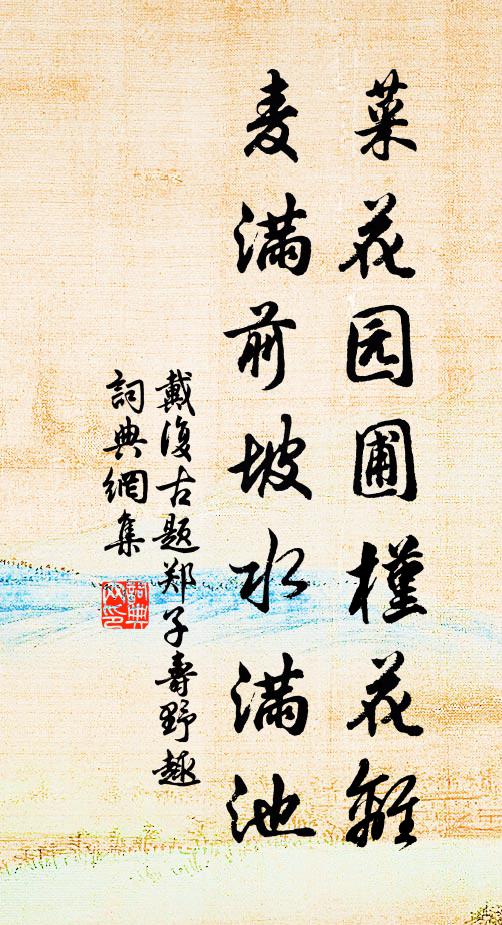 菜花园圃槿花離
麦满前坡水满池
戴復古题郑子壽野趣
詞典網集